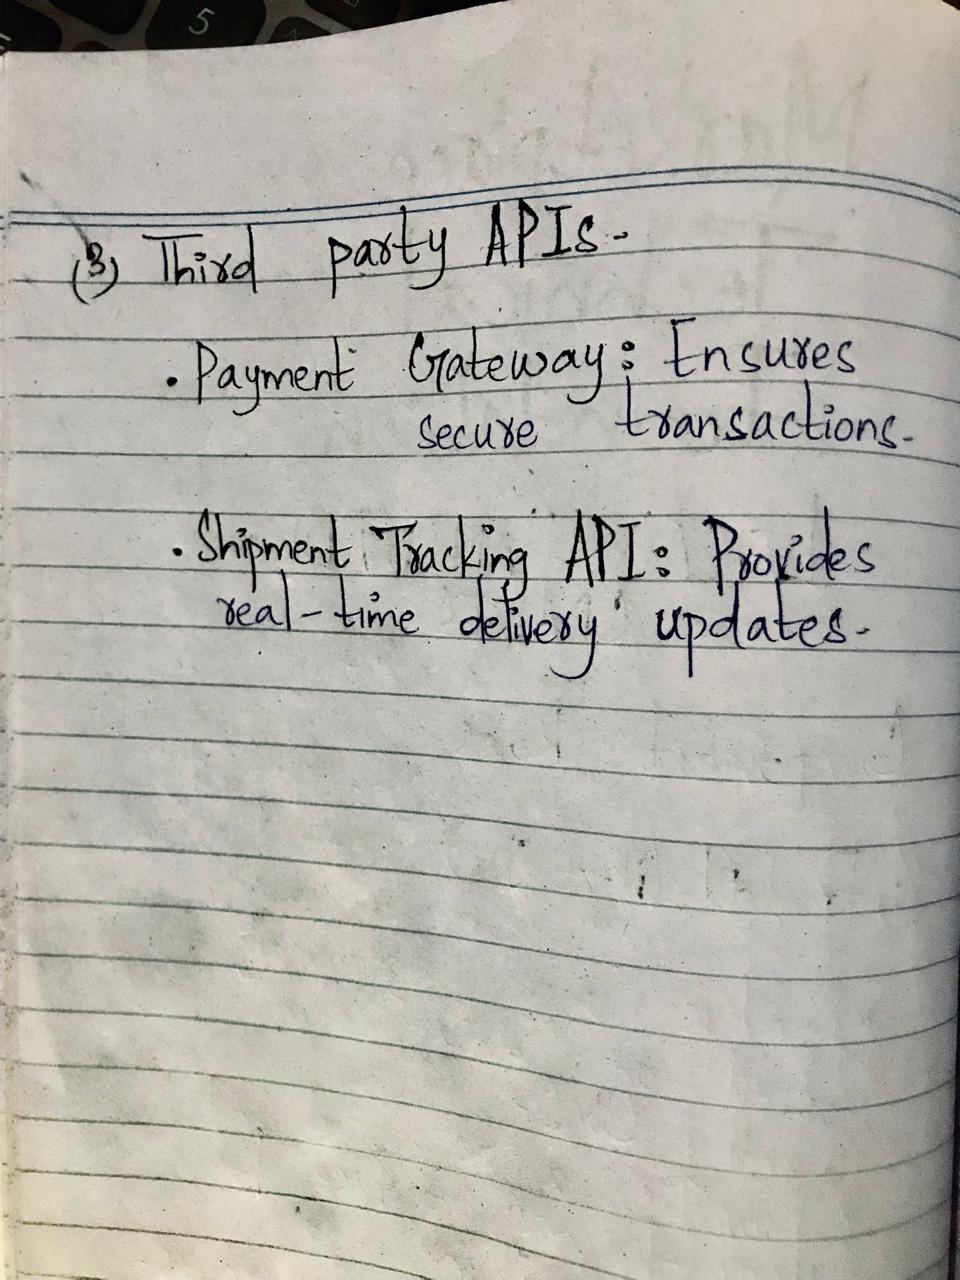 5
(3) Third party APIs-
. Payment Gateway: Ensures
secure transactions.
. Shipment Tracking API: Provides
real-time delivery updates.